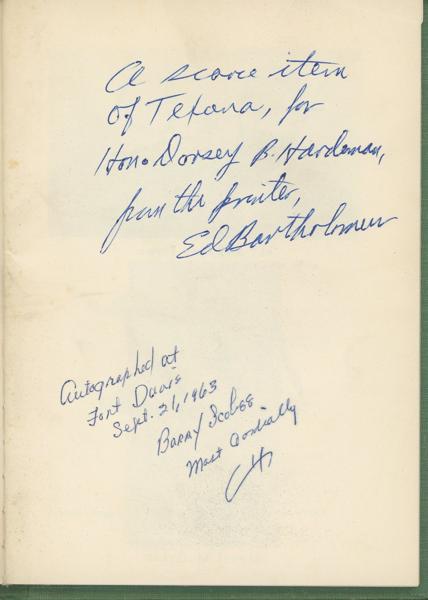 A scarce item
of Texana, for
Hon. Dorsey B. Hardeman,
from the printer,
Ed Bartholomew
Autographed at
Fort Davis
Sept. 21, 1963
Barry Scobee
Most Cordially